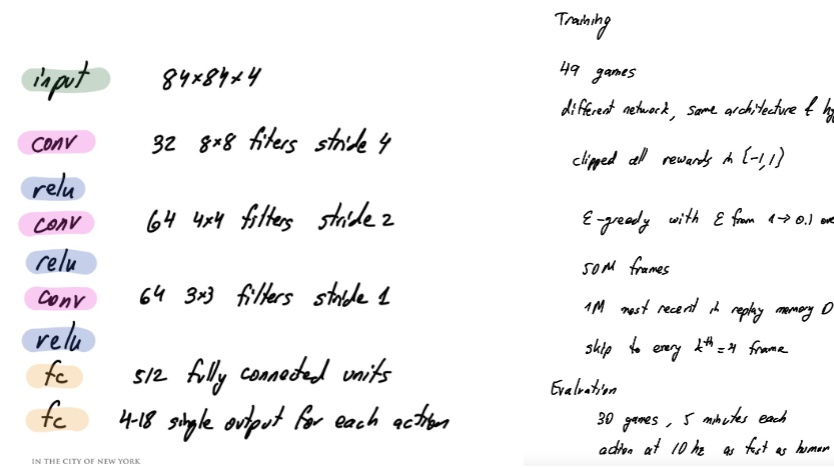 input 84×84×4
conv 32 8×8 filters stride 4
relu
conv 64 4×4 filters stride 2
relu
conv 64 3×3 filters stride 1
relu
fc 512 fully connected units
fc 4-18 single output for each action
IN THE CITY OF NEW YORK
Training
49 games
different network, same architecture & hy
clipped all rewards in {-1,1}
ε-greedy with ε from 1→0.1 ove
50M frames
1M most recent in replay memory D
skip to every kth=4 frame
Evaluation
30 games, 5 minutes each
action at 10 hz as fast as human